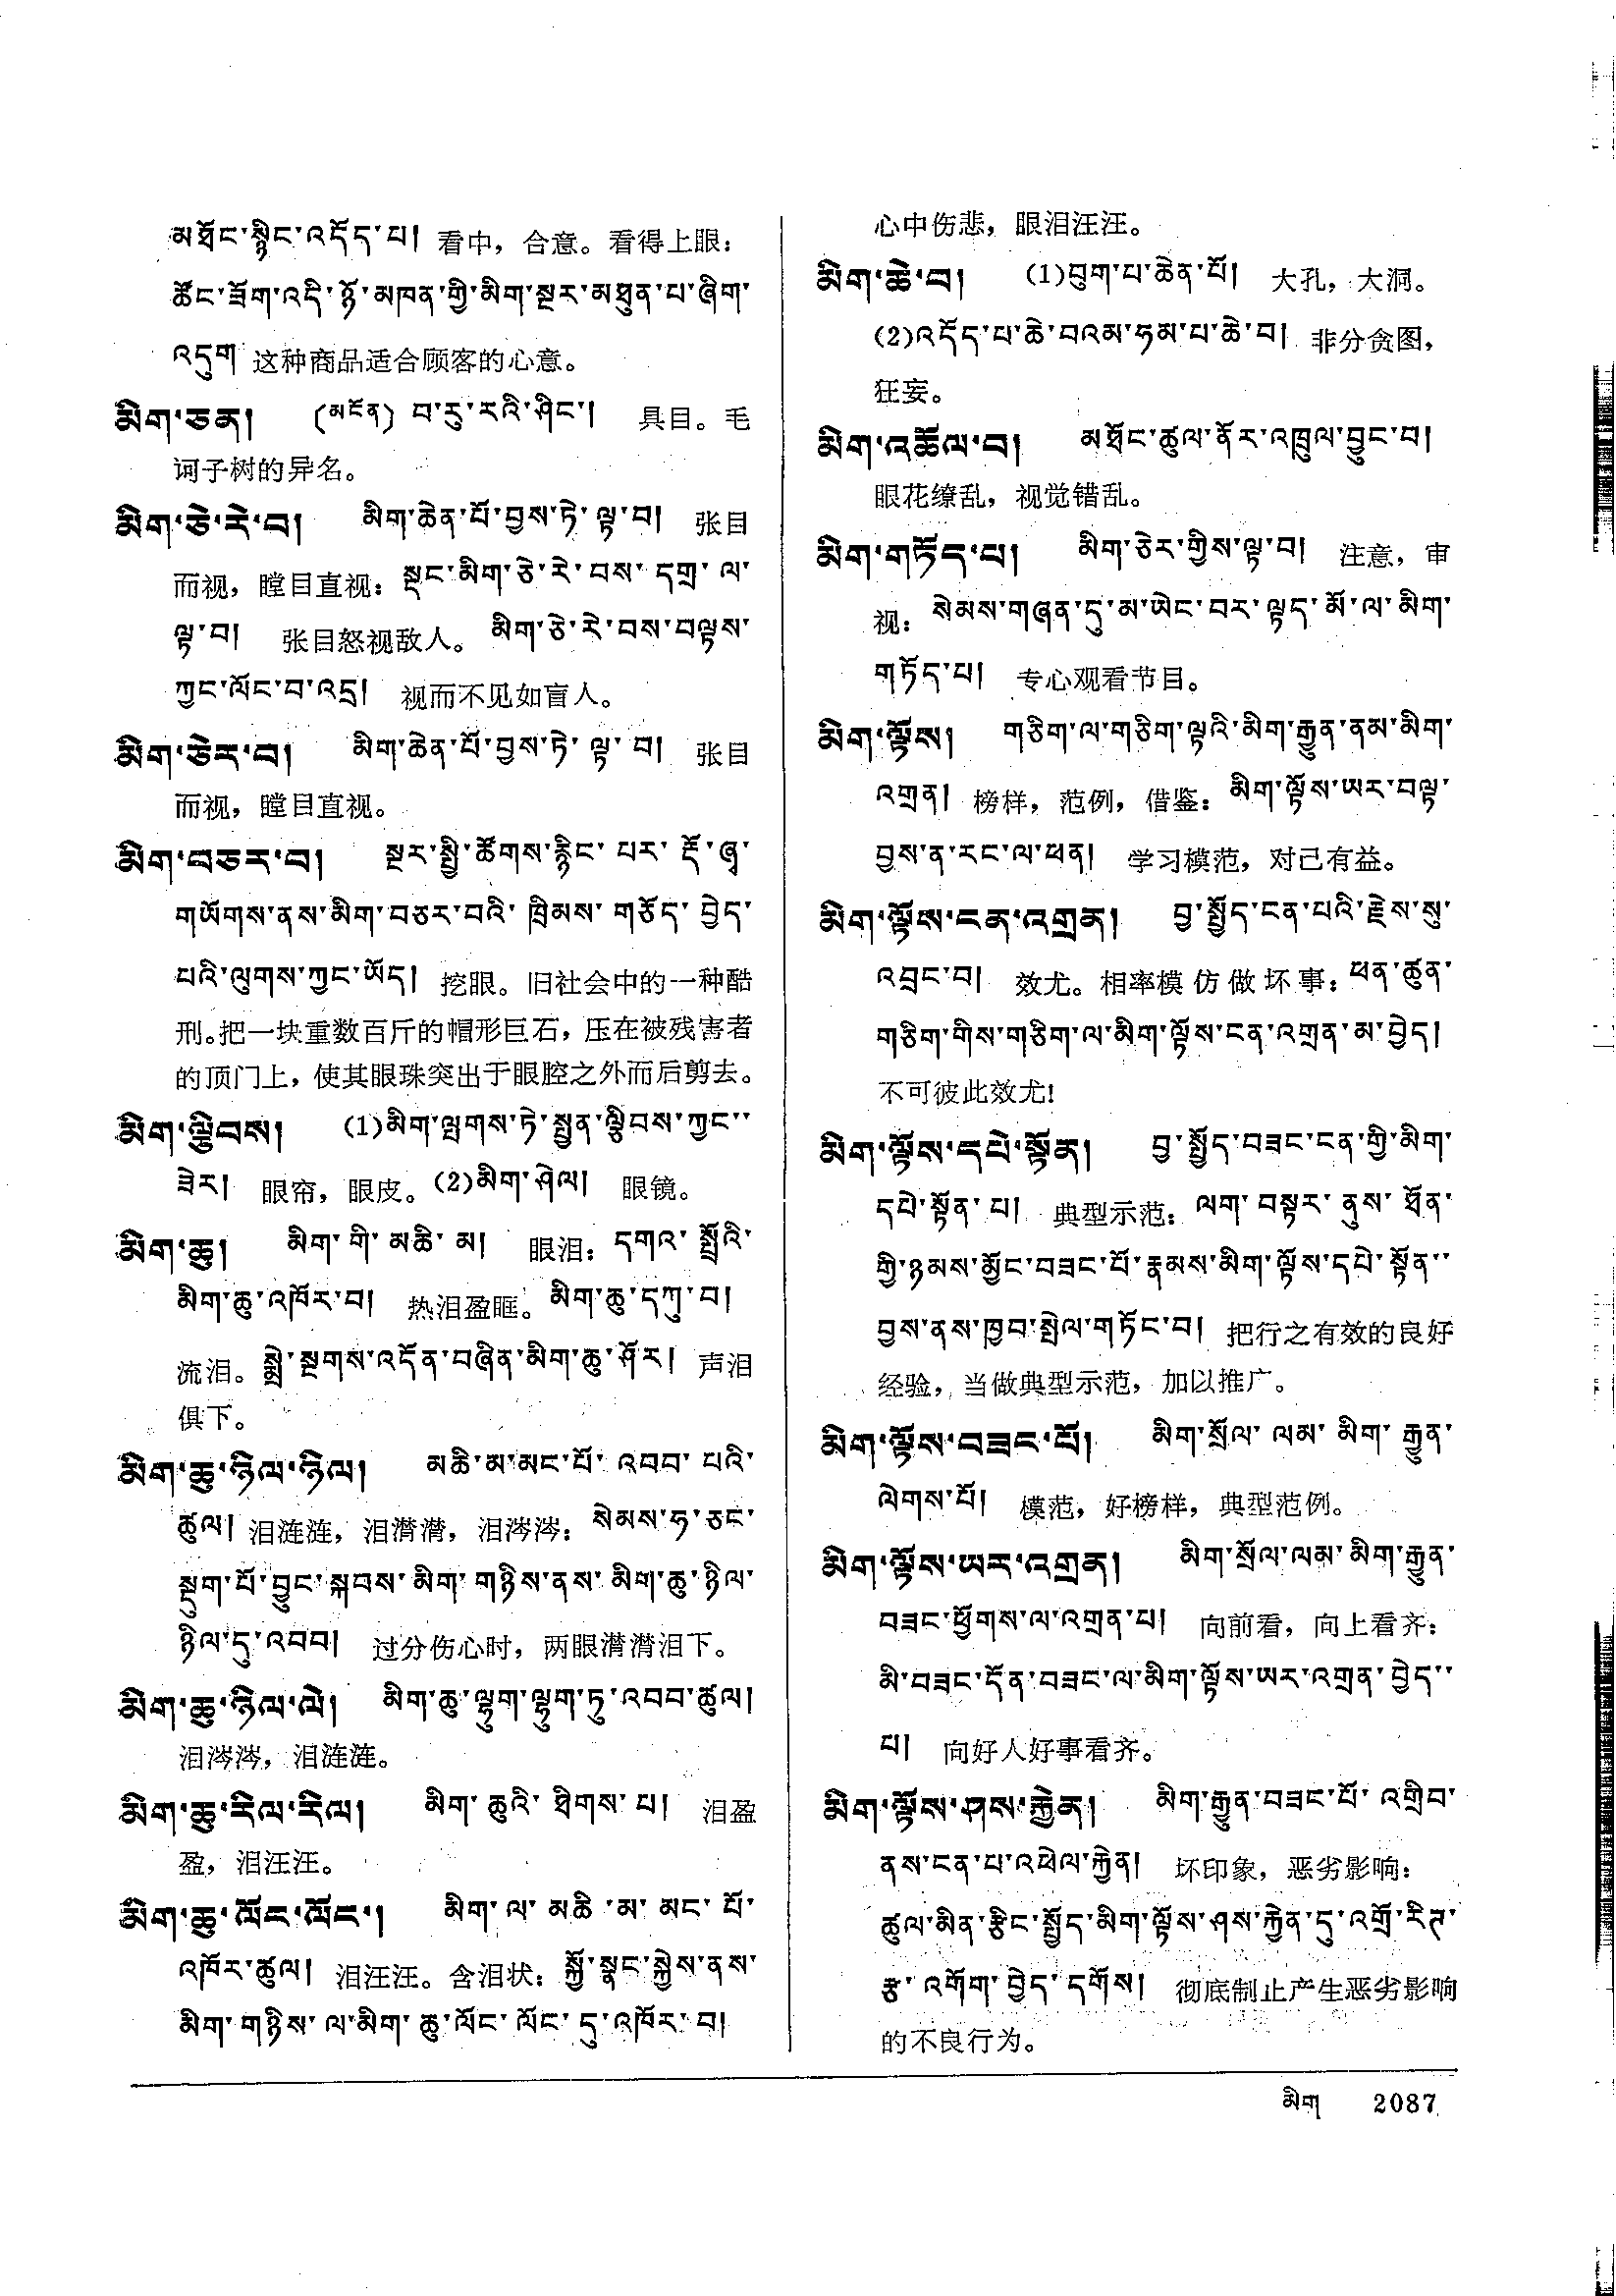 མཐོང་སྙིང་འདོད་པ། 看中，合意。看得上眼：
ཚོང་ཟོག་འདི་ཉོ་མཁན་གྱི་མིག་སྔར་མཐུན་པ་ཞིག་
འདུག 这种商品适合顾客的心意。
མིག་ཅན། (མངོན) བ་རུ་རའི་ཤིང་། 具目。毛
诃子树的异名。
མིག་ཅེ་རེ་བ། མིག་ཆེན་པོ་བྱས་ཏེ་ལྟ་བ། 张目
而视，瞠目直视：སྡང་མིག་ཅེ་རེ་བས་དགྲ་ལ་
ལྟ་བ། 张目怒视敌人。མིག་ཅེ་རེ་བས་བལྟས་
ཀྱང་ལོང་བ་འདྲ། 视而不见如盲人。
མིག་ཅེར་བ། མིག་ཆེན་པོ་བྱས་ཏེ་ལྟ་བ། 张目
而视，瞠目直视。
མིག་བཅར་བ། སྔར་སྤྱི་ཚོགས་རྙིང་པར་རྡོ་ཞྭ་
གཡོགས་ནས་མིག་བཅར་བའི་ཁྲིམས་གཅོད་བྱེད་
པའི་ལུགས་ཀྱང་ཡོད། 挖眼。旧社会中的一种酷
刑。把一块重数百斤的帽形巨石，压在被残害者
的顶门上，使其眼珠突出于眼腔之外而后剪去。
མིག་ལྕིབས། (1)མིག་ལྤགས་ཏེ་སྤྱན་ལྕིབས་ཀྱང་་
ཟེར། 眼帘，眼皮。(2)མིག་ཤེལ། 眼镜。
མིག་ཆུ། མིག་གི་མཆི་མ། 眼泪：དགའ་སྤྲོའི་
མིག་ཆུ་འཁོར་བ། 热泪盈眶。མིག་ཆུ་དཀུ་བ།
流泪。སྨྲེ་སྔགས་འདོན་བཞིན་མིག་ཆུ་ཤོར། 声泪
俱下。
མིག་ཆུ་ཉིལ་ཉིལ། མཆི་མ་མང་པོ་འབབ་པའི་
ཚུལ། 泪涟涟，泪潸潸，泪涔涔：སེམས་ཧ་ཅང་
སྡུག་པོ་བྱུང་སྐབས་མིག་གཉིས་ནས་མིག་ཆུ་ཉིལ་
ཉིལ་དུ་འབབ། 过分伤心时，两眼潸潸泪下。
མིག་ཆུ་ཉིལ་ལེ། མིག་ཆུ་ལྷུག་ལྷུག་ཏུ་འབབ་ཚུལ།
泪涔涔，泪涟涟。
མིག་ཆུ་རིལ་རིལ། མིག་ཆུའི་ཐིགས་པ། 泪盈
盈，泪汪汪。
མིག་ཆུ་ལོང་ལོང་། མིག་ལ་མཆི་མ་མང་པོ་
འཁོར་ཚུལ། 泪汪汪。含泪状：སྐྱོ་སྣང་སྐྱེས་ནས་
མིག་གཉིས་ལ་མིག་ཆུ་ལོང་ལོང་དུ་འཁོར་བ།
心中伤悲，眼泪汪汪。
མིག་ཆེ་བ། (1)བུག་པ་ཆེན་པོ། 大孔，大洞。
(2)འདོད་པ་ཆེ་བའམ་ཧམ་པ་ཆེ་བ། 非分贪图，
狂妄。
མིག་འཆོལ་བ། མཐོང་ཚུལ་ནོར་འཁྲུལ་བྱུང་བ།
眼花缭乱，视觉错乱。
མིག་གཏོད་པ། མིག་ཅེར་གྱིས་ལྟ་བ། 注意，审
视：སེམས་གཞན་དུ་མ་ཡེང་བར་ལྟད་མོ་ལ་མིག་
གཏོད་པ། 专心观看节目。
མིག་ལྟོས། གཅིག་ལ་གཅིག་ལྟའི་མིག་རྒྱུན་ནམ་མིག་
འགྲན། 榜样，范例，借鉴：མིག་ལྟོས་ཡར་བལྟ་
བྱས་ན་རང་ལ་ཕན། 学习模范，对己有益。
མིག་ལྟོས་ངན་འགྲན། བྱ་སྤྱོད་ངན་པའི་རྗེས་སུ་
འབྲང་བ། 效尤。相率模仿做坏事：ཕན་ཚུན་
གཅིག་གིས་གཅིག་ལ་མིག་ལྟོས་ངན་འགྲན་མ་བྱེད།
不可彼此效尤!
མིག་ལྟོས་དཔེ་སྟོན། བྱ་སྤྱོད་བཟང་ངན་གྱི་མིག་
དཔེ་སྟོན་པ། 典型示范：ལག་བསྟར་ནུས་ཐོན་
གྱི་ཉམས་མྱོང་བཟང་པོ་རྣམས་མིག་ལྟོས་དཔེ་སྟོན་་
བྱས་ནས་ཁྱབ་སྤེལ་གཏོང་བ། 把行之有效的良好
经验，当做典型示范，加以推广。
མིག་ལྟོས་བཟང་པོ། མིག་སྲོལ་ལམ་མིག་རྒྱུན་
ལེགས་པོ། 模范，好榜样，典型范例。
མིག་ལྟོས་ཡར་འགྲན། མིག་སྲོལ་ལམ་མིག་རྒྱུན་
བཟང་ཕྱོགས་ལ་འགྲན་པ། 向前看，向上看齐：
མི་བཟང་དོན་བཟང་ལ་མིག་ལྟོས་ཡར་འགྲན་བྱེད་་
པ། 向好人好事看齐。
མིག་ལྟོས་ཤས་རྐྱེན། མིག་རྒྱུན་བཟང་པོ་འགྲིབ་
ནས་ངན་པ་འཕེལ་རྐྱེན། 坏印象，恶劣影响：
ཚུལ་མིན་རྩིང་སྤྱོད་མིག་ལྟོས་ཤས་རྐྱེན་དུ་འགྲོ་རིཊ་
རྩ་འགོག་བྱེད་དགོས། 彻底制止产生恶劣影响
的不良行为。
མིག 2087